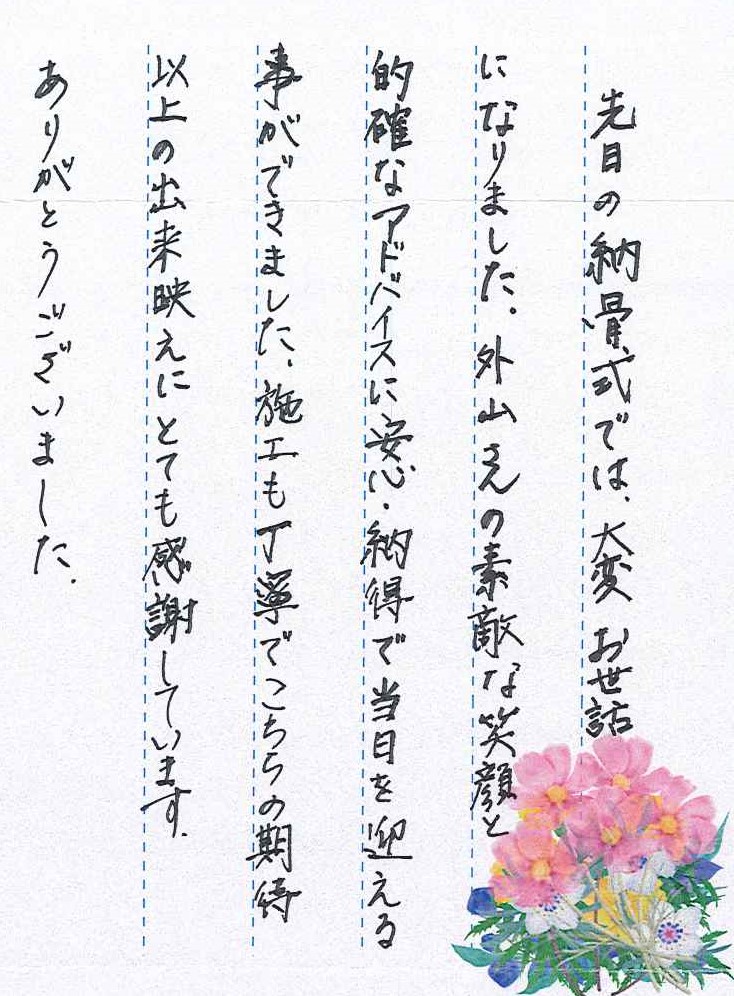 先日の納骨式では、大変お世話
になりました。外山さんの素敵な笑顔と
的確なアドバイスに安心・納得で当日を迎える
事ができました。施工も丁寧でこちらの期待
以上の出来映えにとても感謝しています。
ありがとうございました。